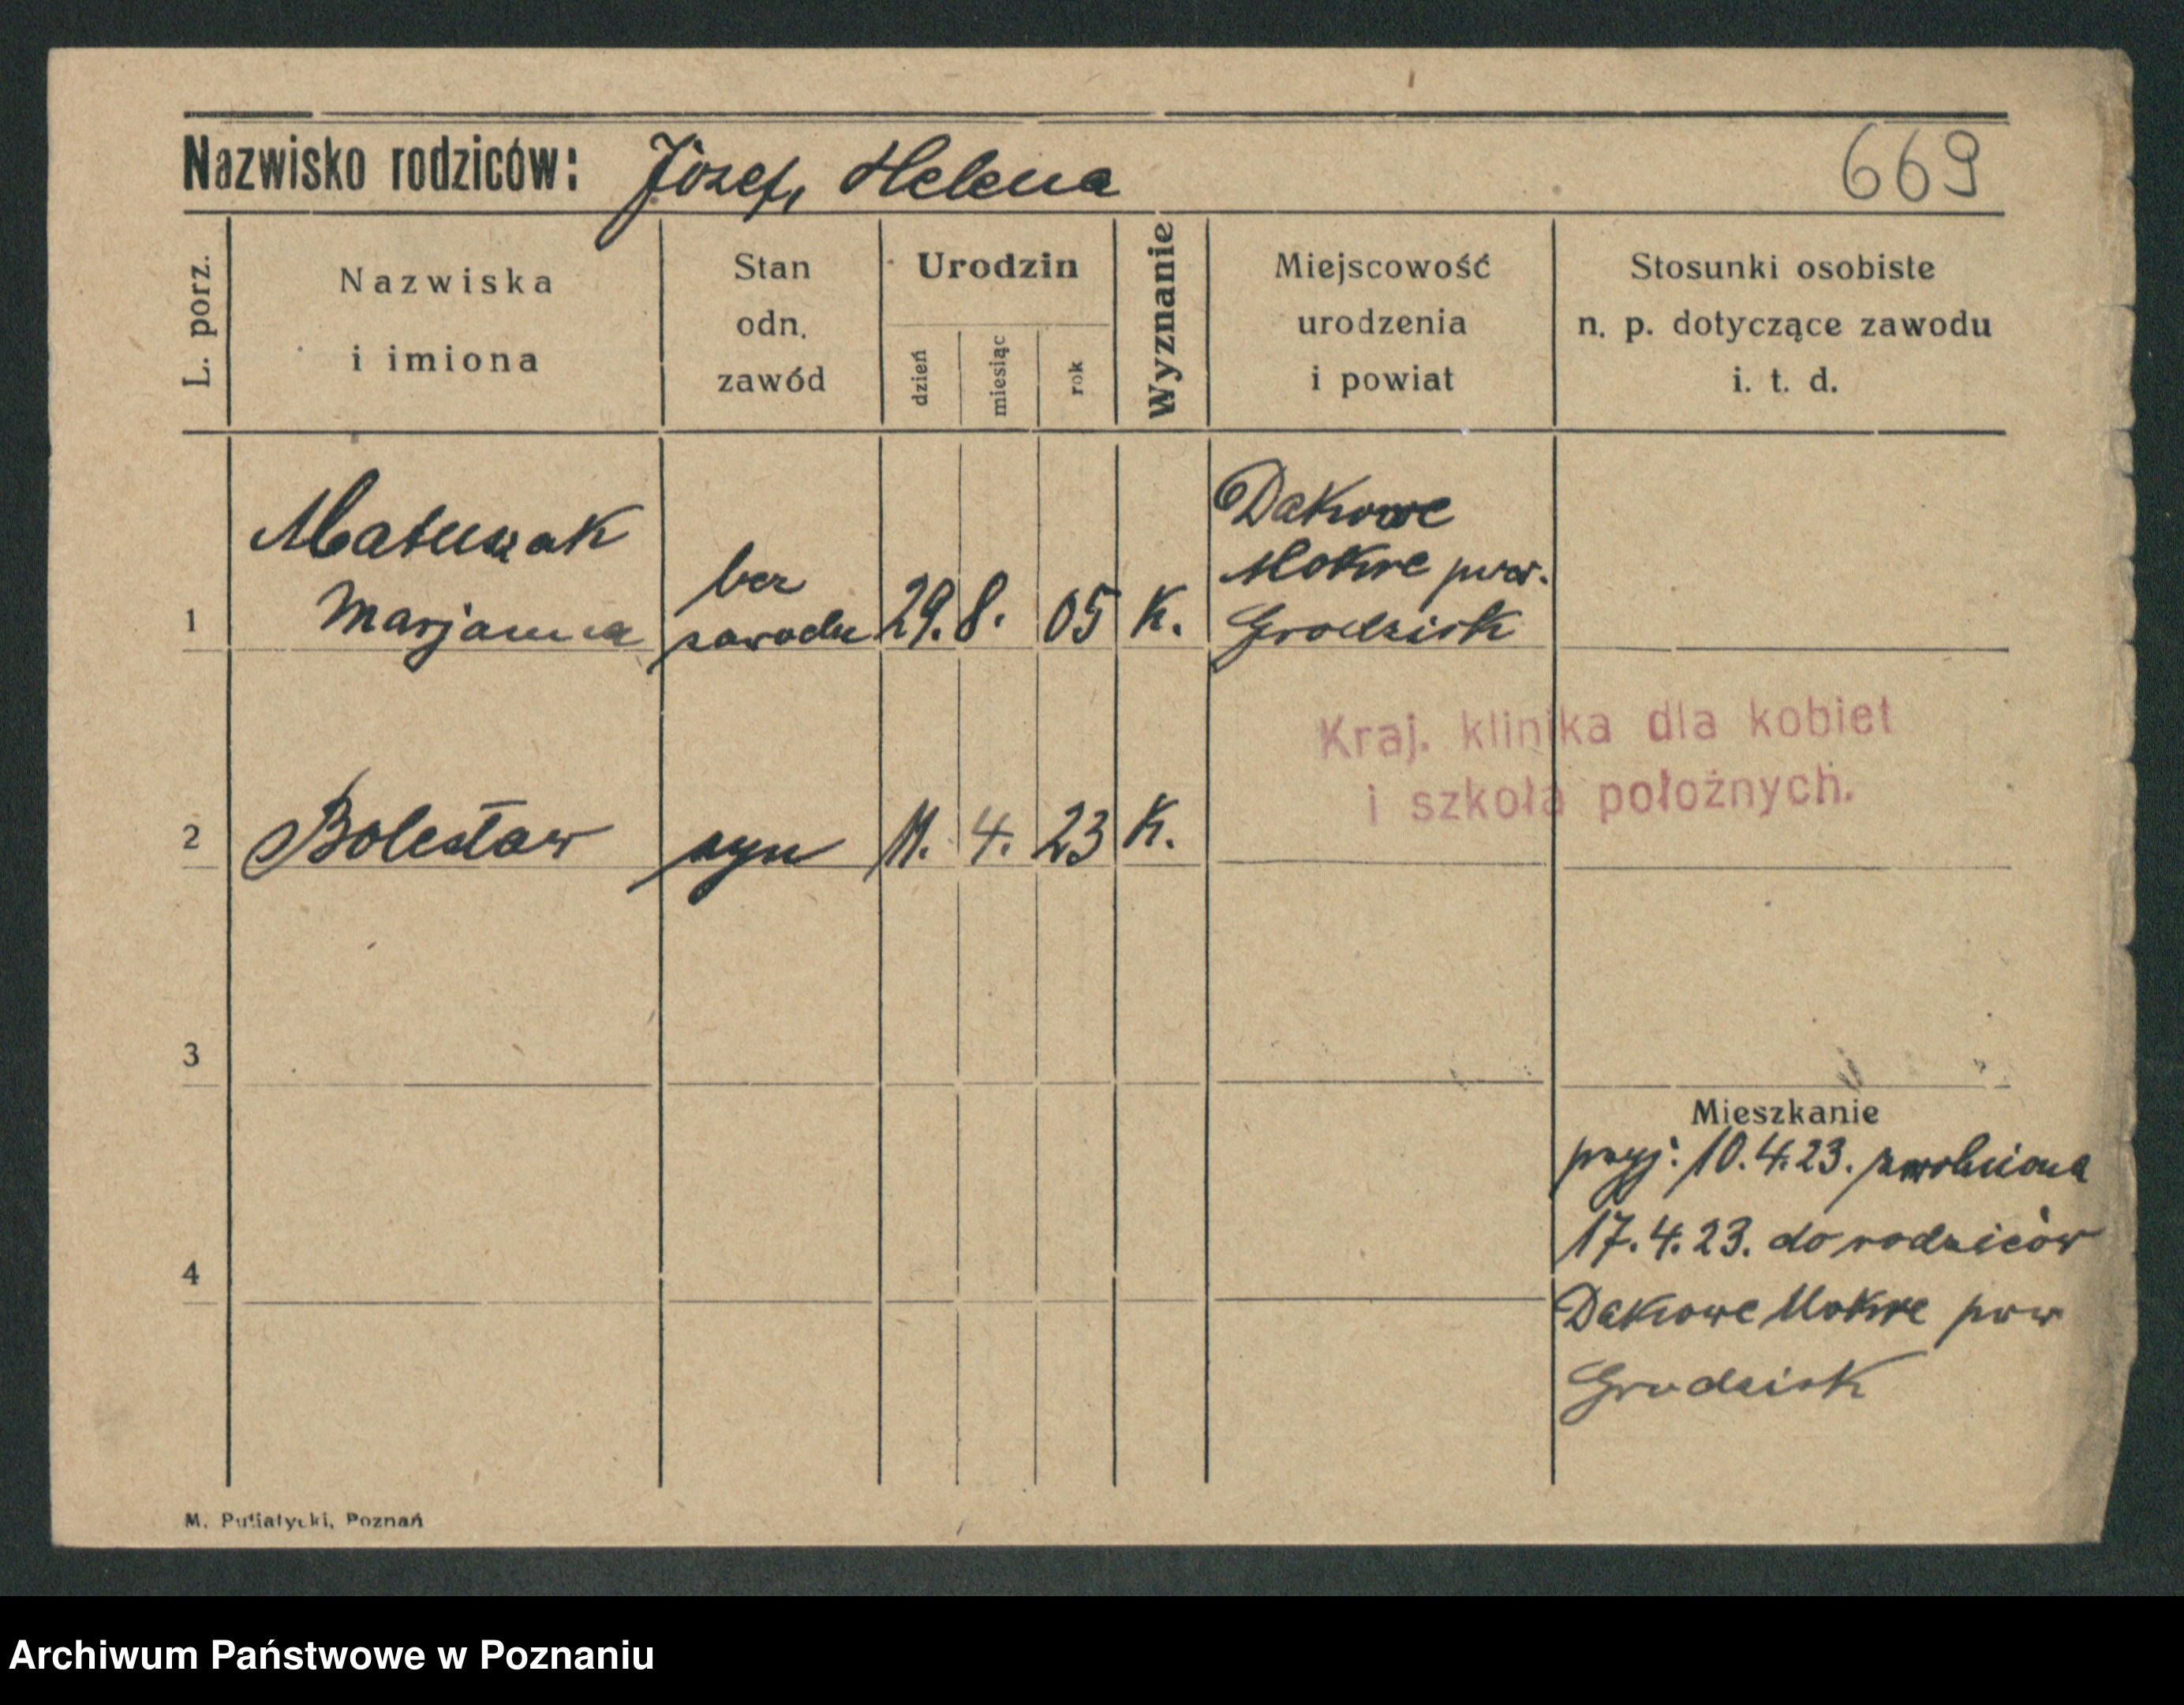 Nazwisko rodziców: Józef, Helena 669
L. porz.
Nazwiska
i imiona
Stan
odn.
zawód
Urodzin
dzień
miesiąc
rok
Wyznanie
Miejscowość
urodzenia
i powiat
Stosunki osobiste
n. p. dotyczące zawodu
i. t. d.
Matuszak
Marjanna
bez
zawodu
1
29. 8. 05 K.
Dakowe
Mokre pow.
Grodzisk
Kraj. klinika dla kobiet
i szkoła położnych.
2 Bolesław syn 11. 4. 23 K.
3
Mieszkanie
przyj. 10.4.23. zwolniona
17.4.23. do rodziców
4
Dakowe Mokre pow
Grodzisk
M. Putiatycki, Poznań
Archiwum Państwowe w Poznaniu